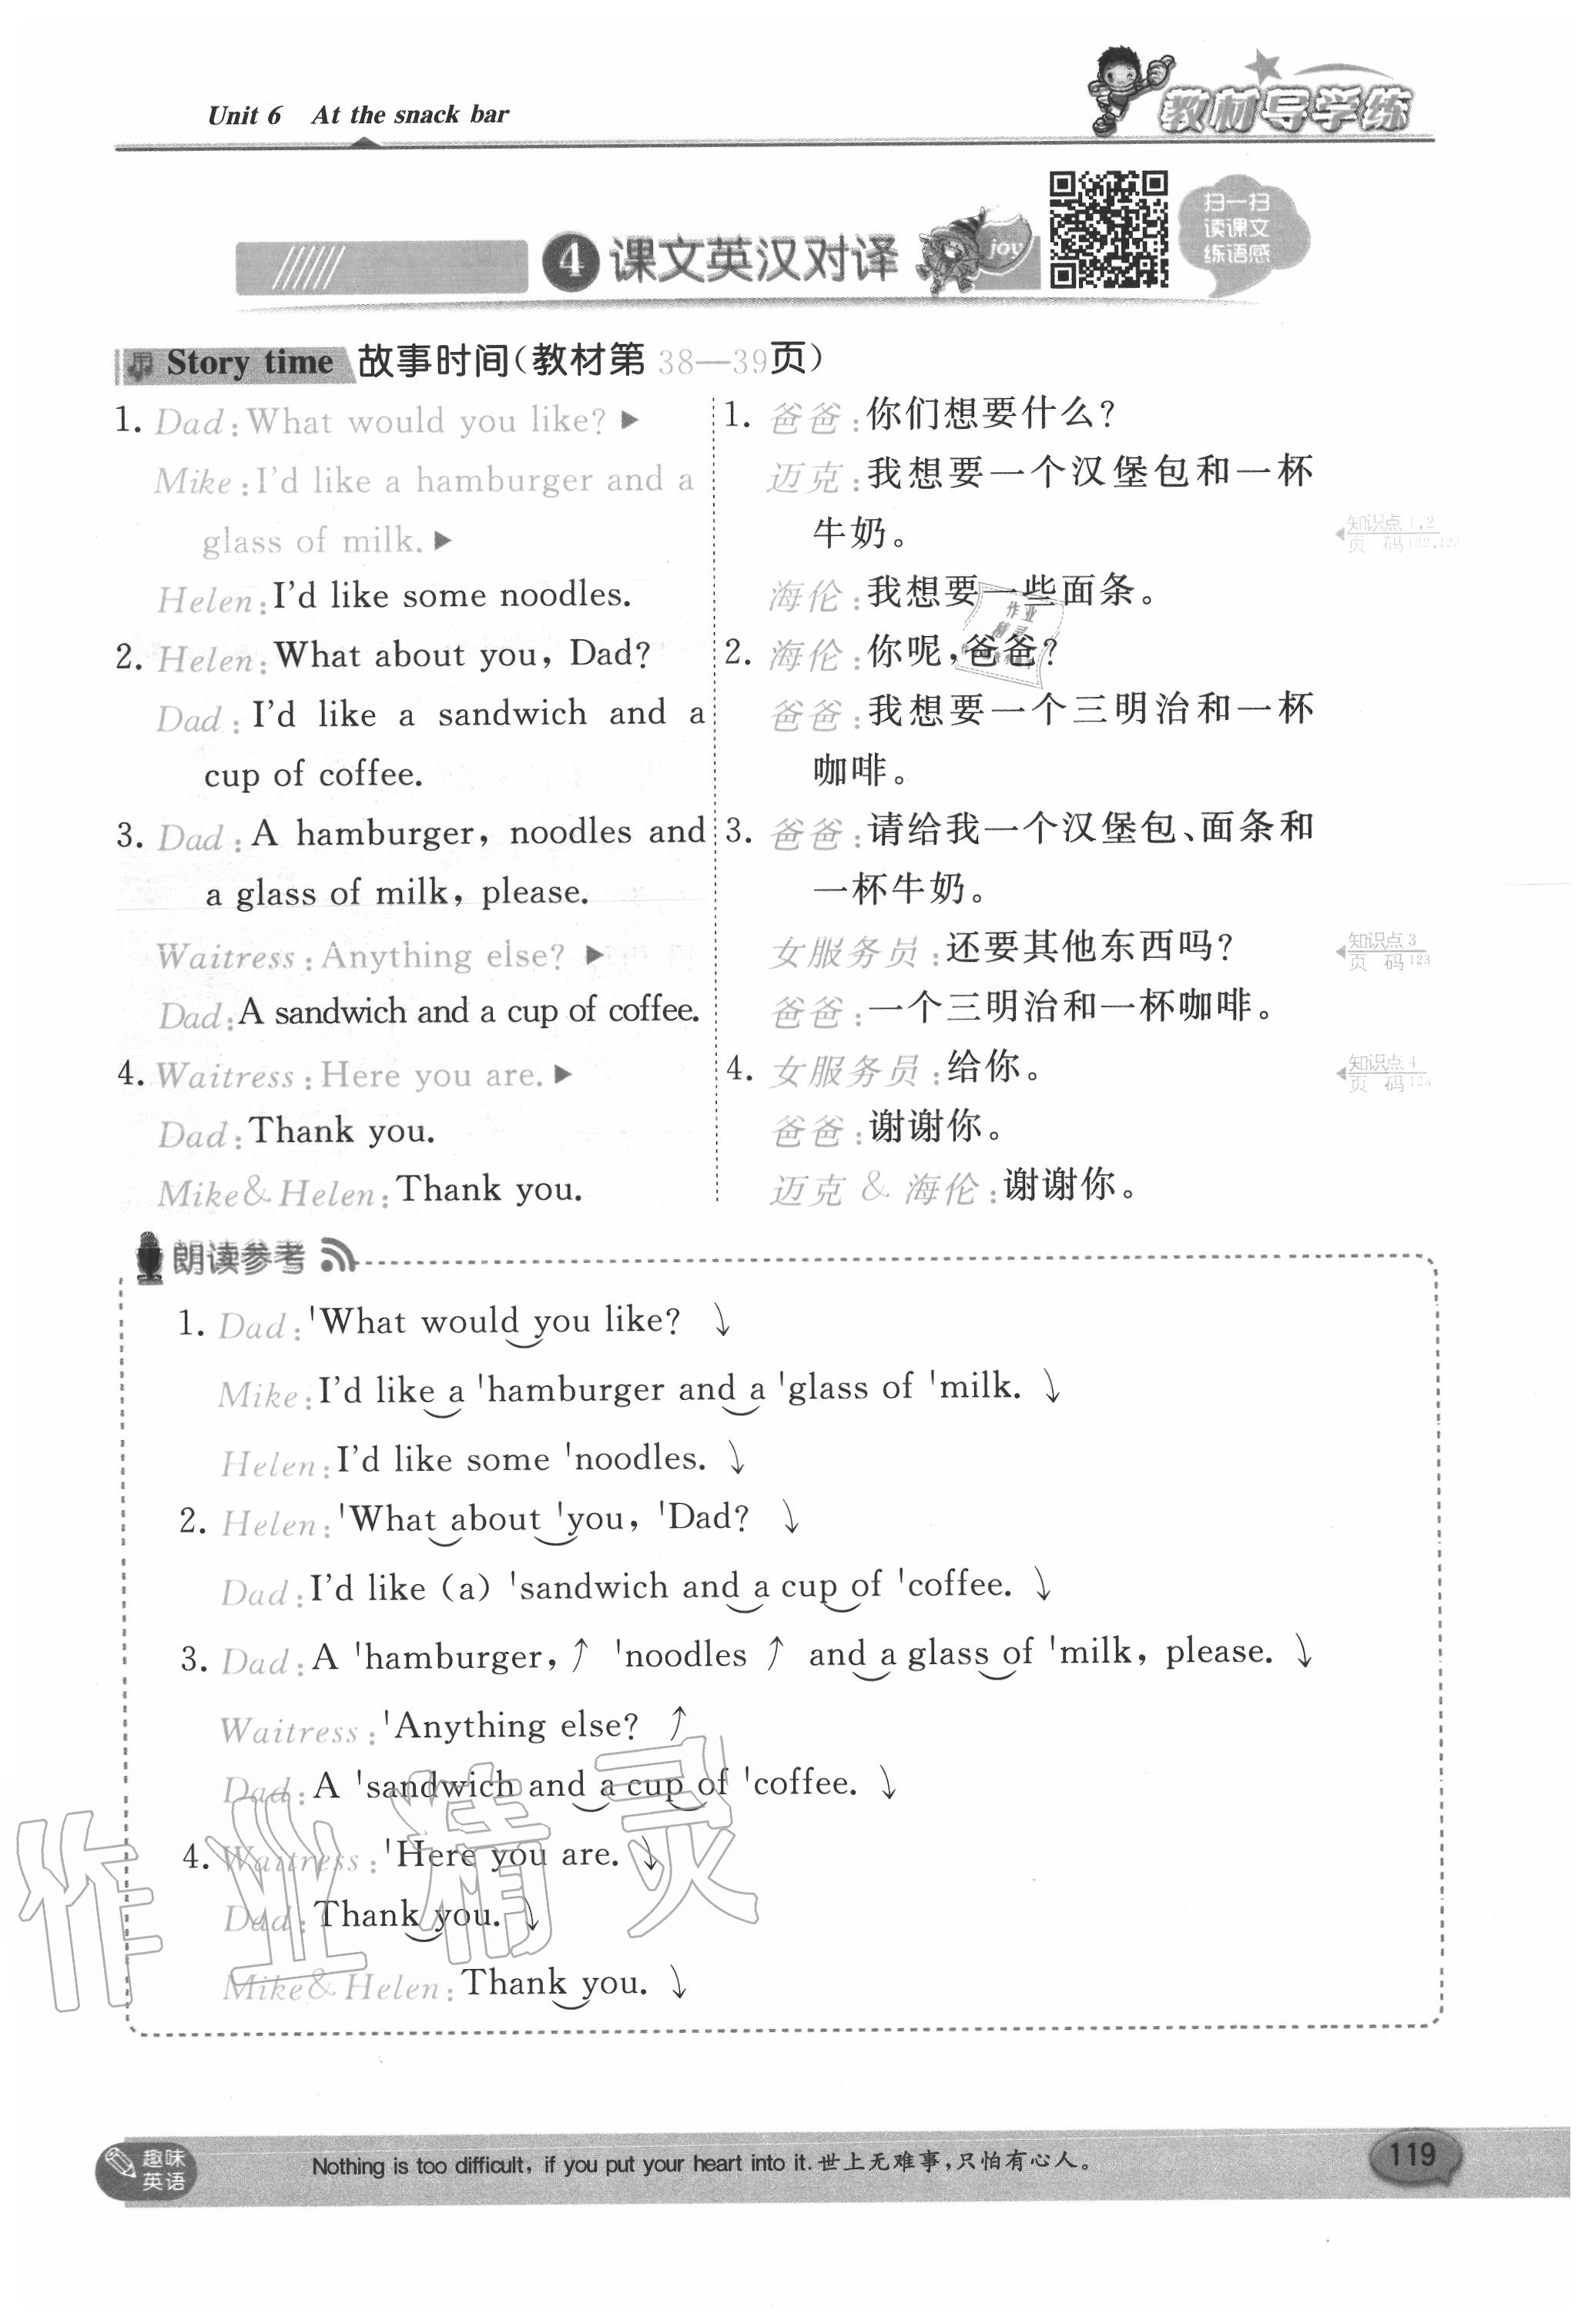 Unit 6 At the snack bar
教材导学练
4 课文英汉对译
joy
扫一扫
读课文
练语感
Story time 故事时间(教材第38—39页)
1. Dad:What would you like?▶
Mike:I'd like a hamburger and a
glass of milk.▶
Helen:I'd like some noodles.
2. Helen:What about you, Dad?
Dad:I'd like a sandwich and a
cup of coffee.
3. Dad:A hamburger, noodles and
a glass of milk, please.
Waitress:Anything else?▶
Dad:A sandwich and a cup of coffee.
4. Waitress:Here you are.▶
Dad:Thank you.
Mike&Helen:Thank you.
1. 爸爸:你们想要什么?
迈克:我想要一个汉堡包和一杯
牛奶。
海伦:我想要一些面条。
2. 海伦:你呢,爸爸?
爸爸:我想要一个三明治和一杯
咖啡。
3. 爸爸:请给我一个汉堡包、面条和
一杯牛奶。
女服务员:还要其他东西吗?
爸爸:一个三明治和一杯咖啡。
4. 女服务员:给你。
爸爸:谢谢你。
迈克 & 海伦:谢谢你。
知识点1,2
页 码122,123
知识点3
页 码123
知识点4
页 码123
作业
精灵
朗读参考
1. Dad:'What would you like? ↘
Mike:I'd like a 'hamburger and a 'glass of 'milk. ↘
Helen:I'd like some 'noodles. ↘
2. Helen:'What about 'you, 'Dad? ↘
Dad:I'd like (a) 'sandwich and a cup of 'coffee. ↘
3. Dad:A 'hamburger,↗ 'noodles ↗ and a glass of 'milk, please. ↘
Waitress:'Anything else? ↗
Dad:A 'sandwich and a cup of 'coffee. ↘
4. Waitress:'Here you are. ↘
Dad:Thank you. ↘
Mike&Helen:Thank you. ↘
作业精灵
趣味
英语
Nothing is too difficult, if you put your heart into it.世上无难事,只怕有心人。
119